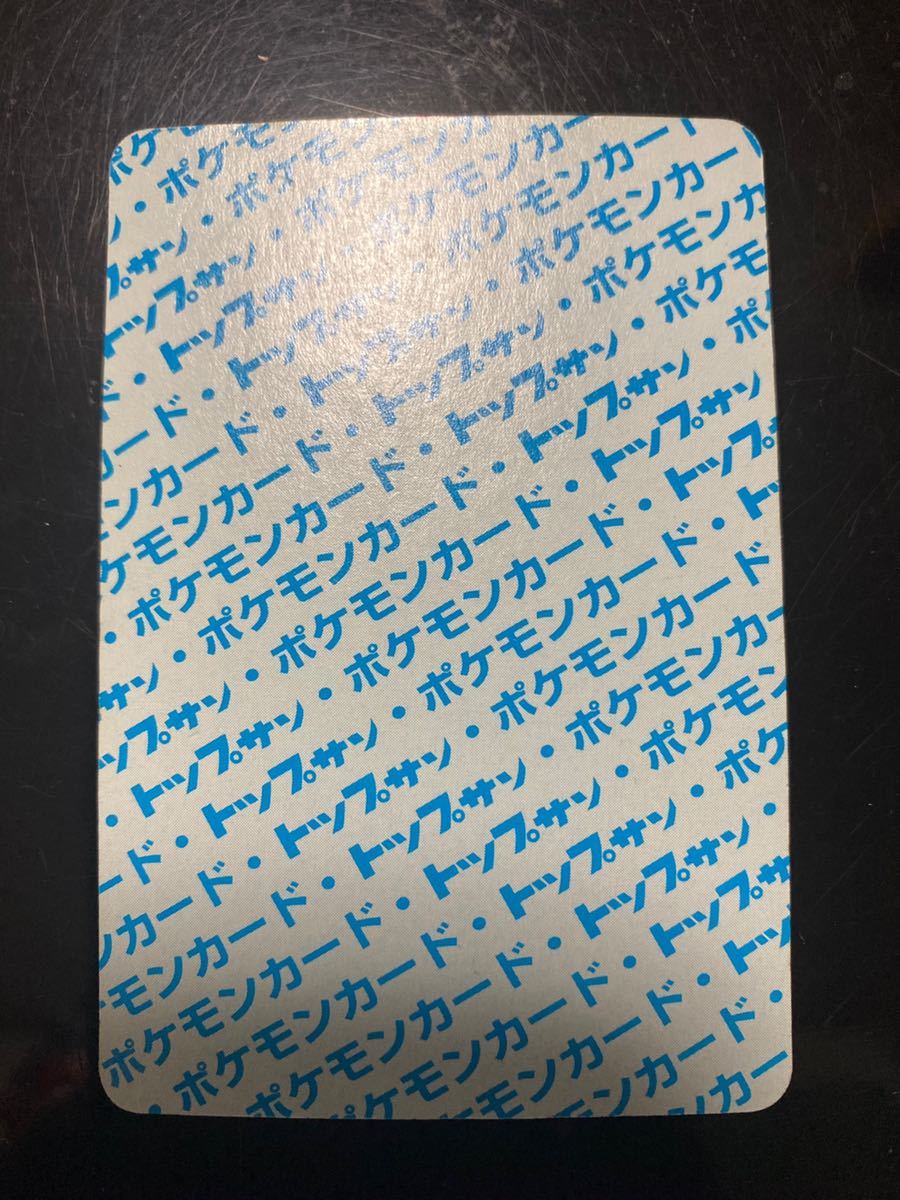 ポケ
ン・ポケモ
プサン・ポケモン
トップサン・ポケモンカ
ド・トップサン・ポケモンカー
ード・トップサン・ポケモンカード
ンカード・トップサン・ポケモンカード
ケモンカード・トップサン・ポケモンカ
・ポケモンカード・トップサン・ポケモ
サン・ポケモンカード・トップサン・ポ
ップサン・ポケモンカード・トップサン
・トップサン・ポケモンカード・トップ
ード・トップサン・ポケモンカード・ト
ンカード・トップサン・ポケモンカード
モンカード・トップサン・ポケモンカー
ポケモンカード・トップサン・ポケモン
・ポケモンカード・トップサン・ポケ
ポケモンカード・トップサン・
ポケモンカード・トップサ
モンカード・トッ
ンカード・
カー